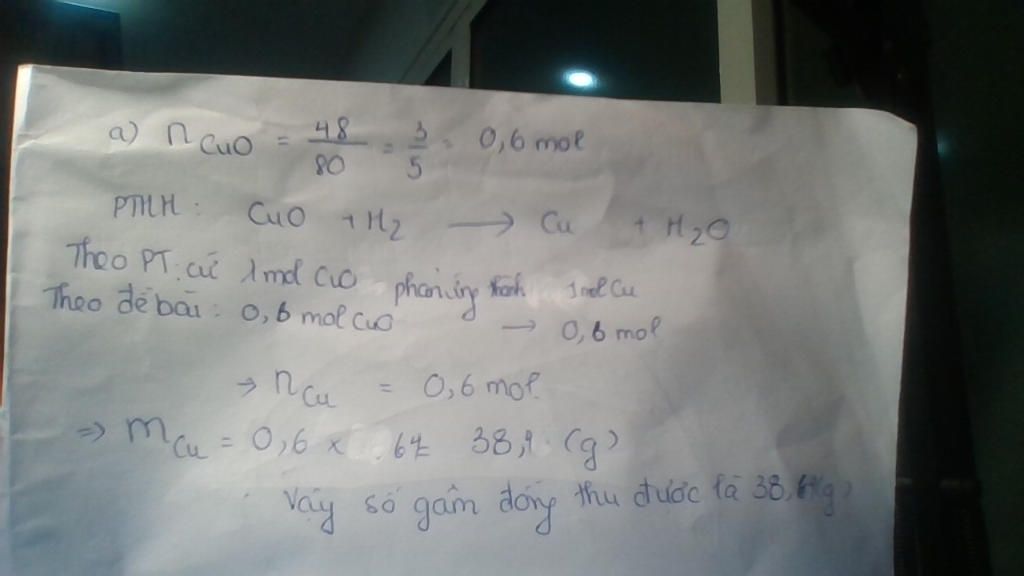 a) nCuO = 48/80 = 3/5 = 0,6 mol
PTHH: CuO + H2 → Cu + H2O
Theo PT: cứ 1mol CuO phản ứng thành 1mol Cu
Theo đề bài: 0,6 mol CuO → 0,6 mol
⇒ nCu = 0,6 mol
⇒ mCu = 0,6 x 64 = (g)
Vậy số gam đồng thu được là (g)